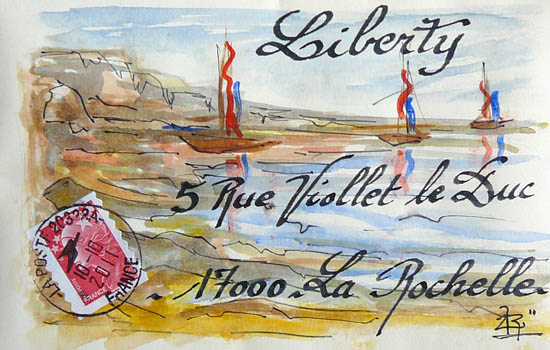 Liberty
5 Rue Viollet le Duc
17000 La Rochelle
LA POSTE
FRANCE
FRANCE